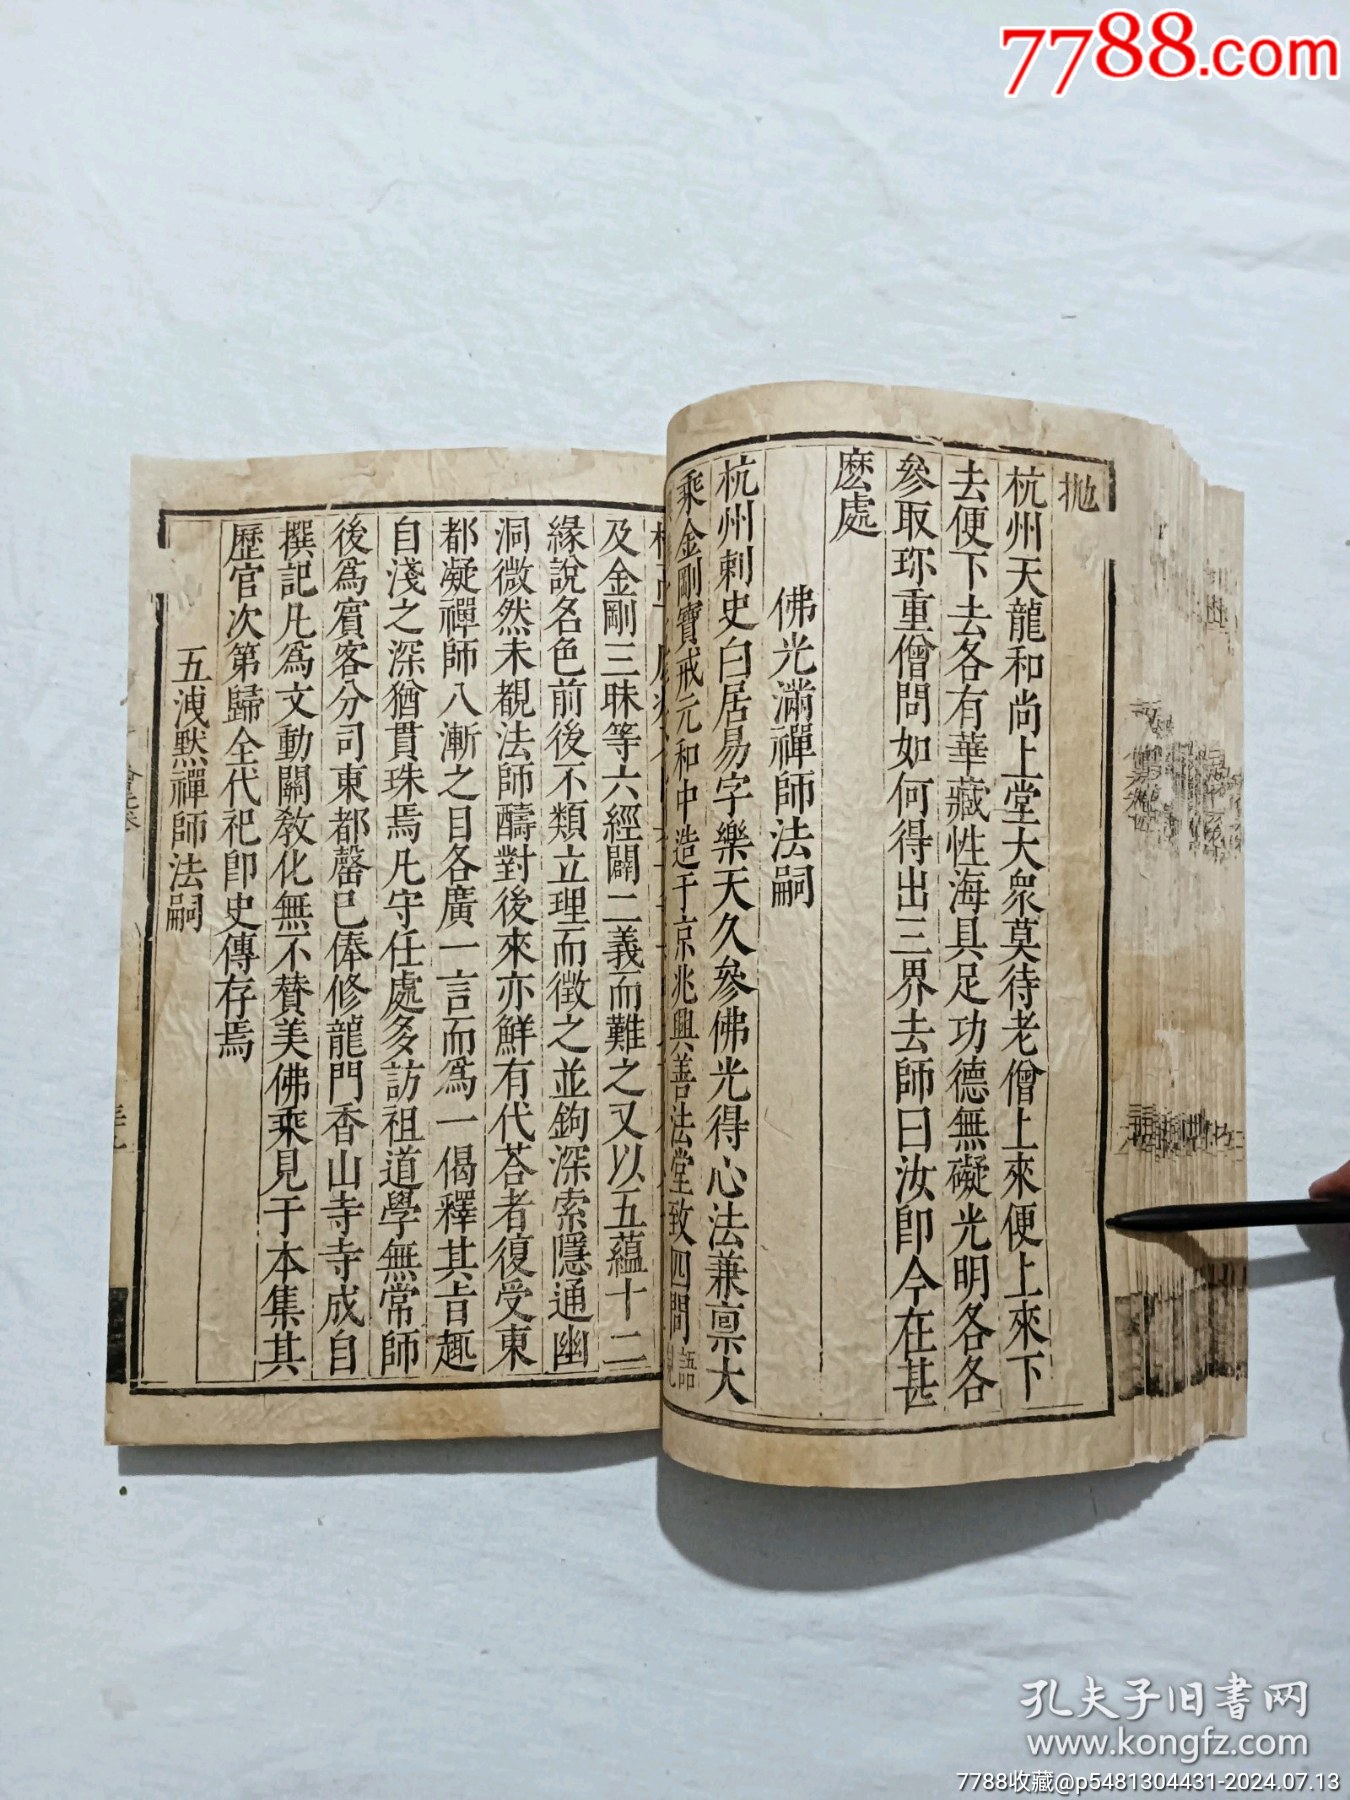 7788.com
拋
杭州天龍和尚上堂大衆莫待老僧上來便上來下
去便下去各有華藏性海具足功德無礙光明各各
參取珎重僧問如何得出三界去師曰汝卽今在甚
麽處
佛光滿禪師法嗣
杭州刺史白居易字樂天久參佛光得心法兼稟大
乘金剛寶戒元和中造于京兆興善法堂致四問語見
及金剛三昧等六經闢二義而難之又以五蘊十二
緣說名色前後不類立理而徵之並鉤深索隱通幽
洞微然未覩法師疇對後來亦鮮有代荅者復受東
都凝禪師八漸之目各廣一言而爲一偈釋其旨趣
自淺之深猶貫珠焉凡守任處多訪祖道學無常師
後爲賓客分司東都罄巳俸修龍門香山寺寺成自
撰記凡爲文動關敎化無不賛美佛乘見于本集其
歷官次第歸全代祀卽史傳存焉
五洩默禪師法嗣
孔夫子旧書网
www.kongfz.com
7788收藏@p5481304431-2024.07.13